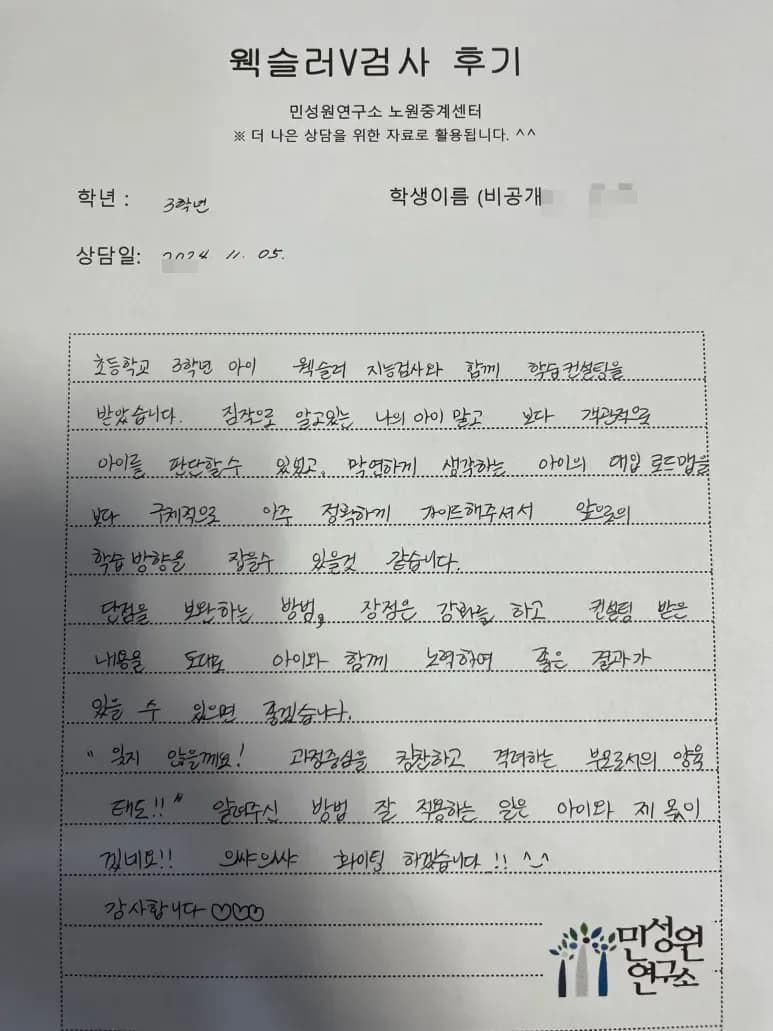 웩슬러V검사 후기
민성원연구소 노원중계센터
※ 더 나은 상담을 위한 자료로 활용됩니다. ^^
학년 : 3학년 학생이름 (비공개
상담일: 2024 11. 05.
초등학교 3학년 아이 웩슬러 지능검사와 함께 학습컨설팅을
받았습니다. 짐작으로 알고있는 나의 아이 말고 보다 객관적으로
아이를 판단할수 있었고, 막연하게 생각하는 아이의 대입 로드맵을
보다 구체적으로 아주 정확하게 가이드해주셔서 앞으로의
학습 방향을 잡을수 있을것 같습니다.
단점을 보완하는 방법, 장점은 강화를 하고 컨설팅 받은
내용을 토대로 아이와 함께 노력하여 좋은 결과가
있을 수 있으면 좋겠습니다.
" 잊지 않을께요! 과정중심을 칭찬하고 격려하는 부모로서의 양육
태도!!" 알려주신 방법 잘 적용하는 일은 아이와 제 몫이
겠네요!! 으쌰으쌰 화이팅 하겠습니다!! ^_^
감사합니다 ♡♡♡
민성원
연구소